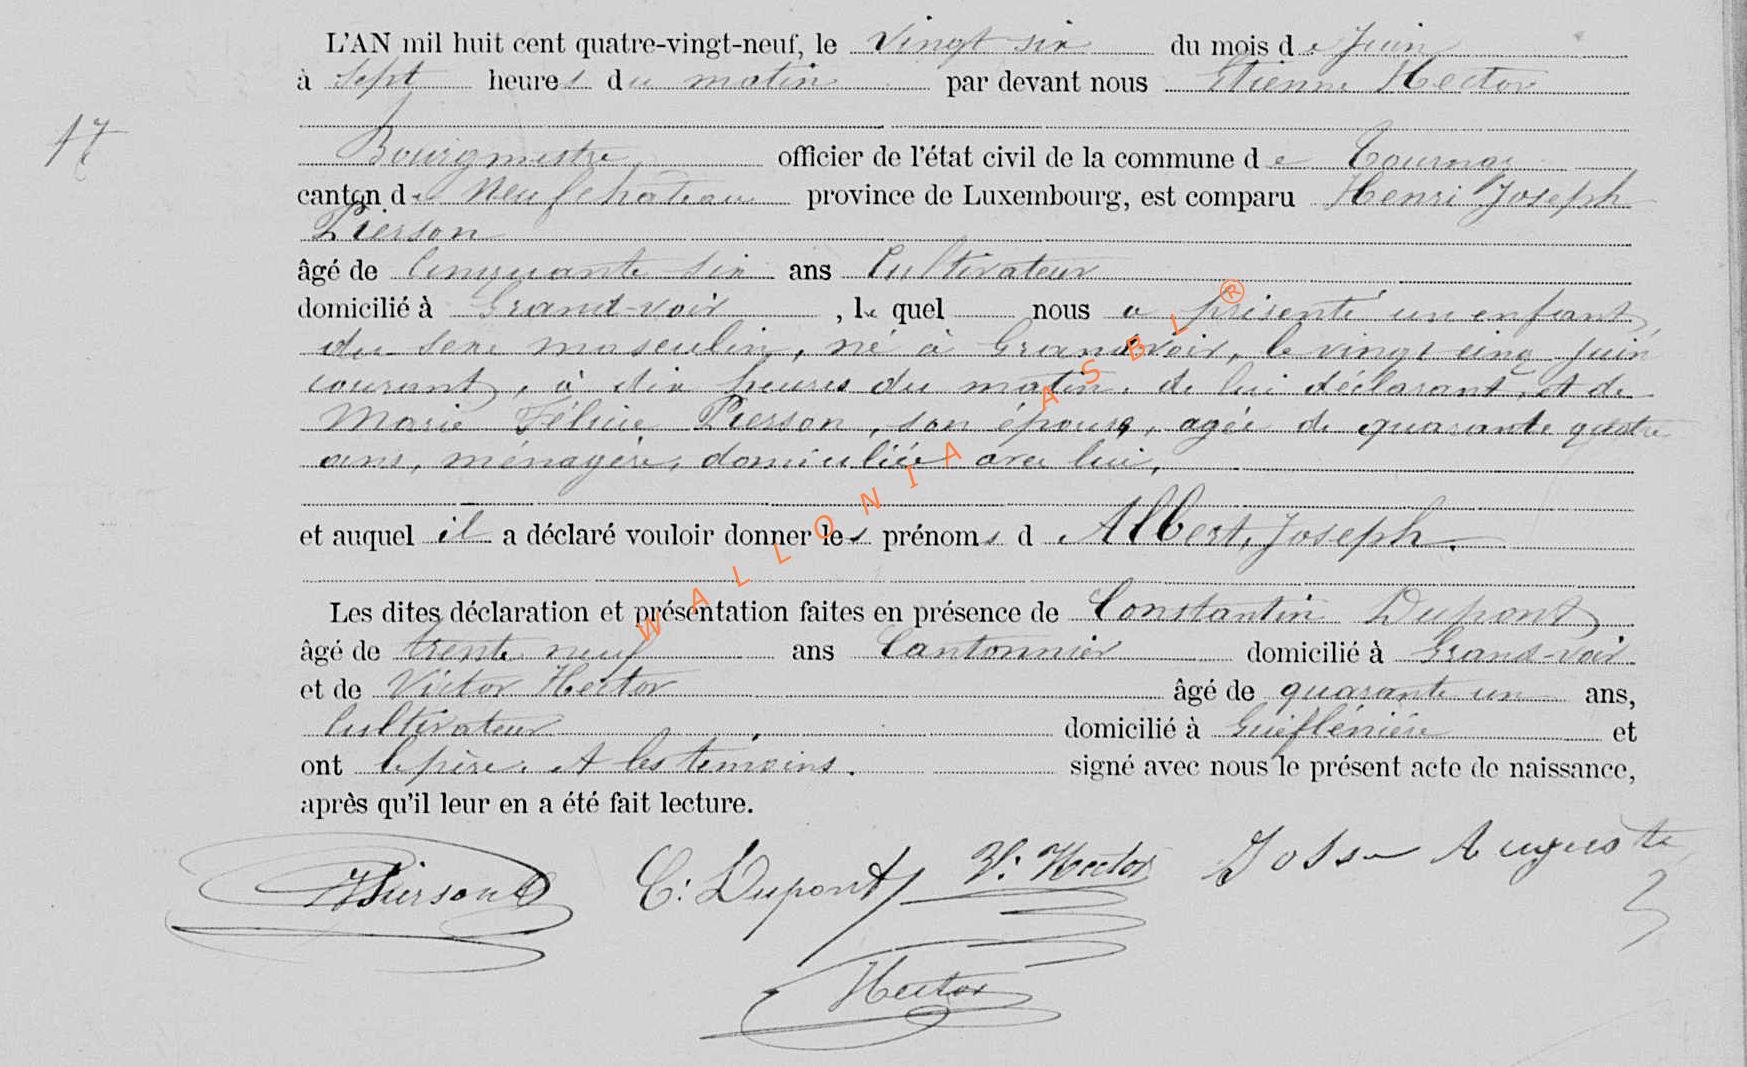 L'AN mil huit cent quatre-vingt-neuf, le vingt six du mois de Juin
à sept heures du matin par devant nous Etienne Hector
17
Bourgmestre, officier de l'état civil de la commune de Tournay
canton de Neufchâteau province de Luxembourg, est comparu Henri Joseph
Pierson
âgé de cinquante six ans Cultivateur
domicilié à Grand-voir, lequel nous a présenté un enfant
du sexe masculin, né à Grandvoir, le vingt cinq juin
courant, à dix heures du matin, de lui déclarant, et de
Marie Félicie Pierson, son épouse, agée de quarante quatre
ans, ménagère, domiciliée avec lui,
et auquel il a déclaré vouloir donner les prénoms d Albert, Joseph.
Les dites déclaration et présentation faites en présence de Constantin Dupont
âgé de trente neuf ans Cantonnier domicilié à Grand-voir
et de Victor Hector âgé de quarante un ans,
Cultivateur domicilié à et
ont le père et les témoins. signé avec nous le présent acte de naissance,
après qu'il leur en a été fait lecture.
HPierson C: Dupont V. Hector Auguste
Hector
WALLONIA ASBL ®